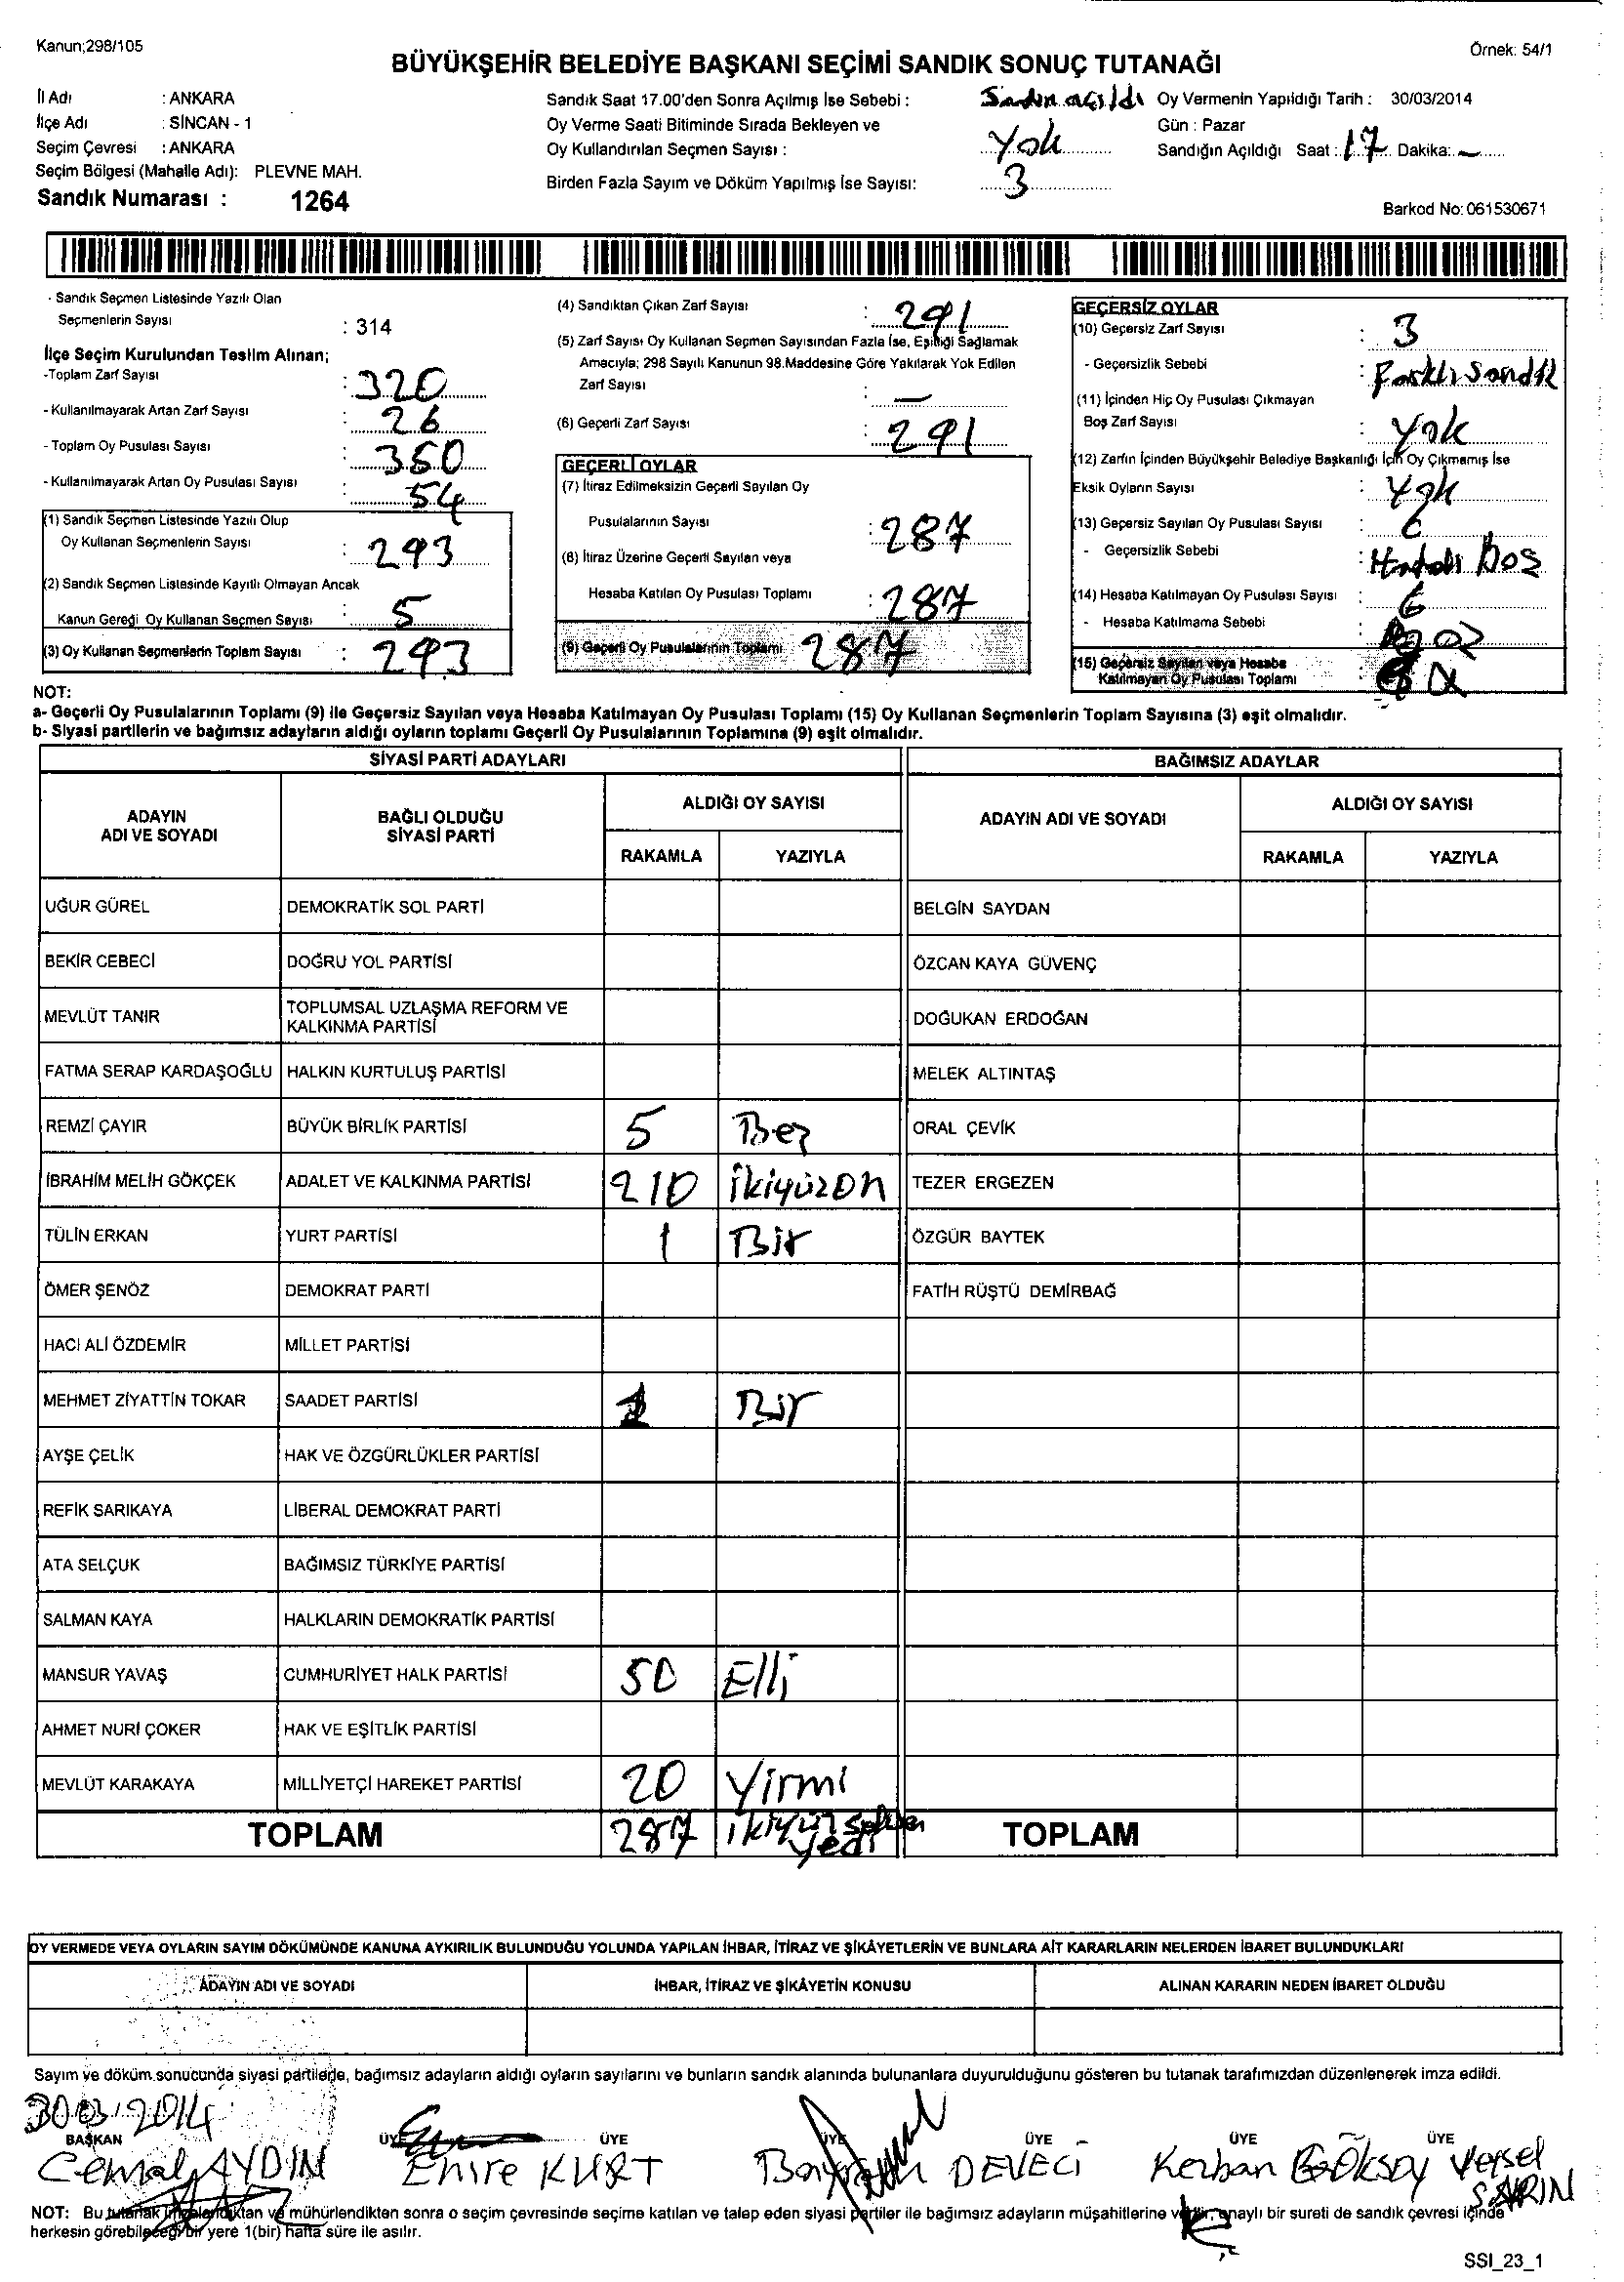 Kanun;298/105
Örnek: 54/1
BÜYÜKŞEHİR BELEDİYE BAŞKANI SEÇİMİ SANDIK SONUÇ TUTANAĞI
İl Adı : ANKARA
İlçe Adı : SİNCAN - 1
Seçim Çevresi : ANKARA
Seçim Bölgesi (Mahalle Adı): PLEVNE MAH.
Sandık Numarası : 1264
Sandık Saat 17.00'den Sonra Açılmış İse Sebebi : açıldı
Oy Verme Saati Bitiminde Sırada Bekleyen ve
Oy Kullandırılan Seçmen Sayısı : Yok
Birden Fazla Sayım ve Döküm Yapılmış İse Sayısı: 3
Oy Vermenin Yapıldığı Tarih : 30/03/2014
Gün : Pazar
Sandığın Açıldığı Saat : 17 Dakika: —
Barkod No: 061530671
- Sandık Seçmen Listesinde Yazılı Olan
Seçmenlerin Sayısı : 314
İlçe Seçim Kurulundan Teslim Alınan;
-Toplam Zarf Sayısı : 320
- Kullanılmayarak Artan Zarf Sayısı : 26
- Toplam Oy Pusulası Sayısı : 350
- Kullanılmayarak Artan Oy Pusulası Sayısı : 54
(1) Sandık Seçmen Listesinde Yazılı Olup
Oy Kullanan Seçmenlerin Sayısı : 293
(2) Sandık Seçmen Listesinde Kayıtlı Olmayan Ancak
Kanun Gereği Oy Kullanan Seçmen Sayısı : 5
(3) Oy Kullanan Seçmenlerin Toplam Sayısı : 293
(4) Sandıktan Çıkan Zarf Sayısı : 291
(5) Zarf Sayısı Oy Kullanan Seçmen Sayısından Fazla İse, Eşitliği Sağlamak
Amacıyla; 298 Sayılı Kanunun 98.Maddesine Göre Yakılarak Yok Edilen
Zarf Sayısı : —
(6) Geçerli Zarf Sayısı : 291
GEÇERLİ OYLAR
(7) İtiraz Edilmeksizin Geçerli Sayılan Oy
Pusulalarının Sayısı : 287
(8) İtiraz Üzerine Geçerli Sayılan veya
Hesaba Katılan Oy Pusulası Toplamı : 287
(9) Geçerli Oy Pusulalarının Toplamı 287
GEÇERSİZ OYLAR
(10) Geçersiz Zarf Sayısı : 3
- Geçersizlik Sebebi : Farklı Sandık
(11) İçinden Hiç Oy Pusulası Çıkmayan
Boş Zarf Sayısı : Yok
(12) Zarfın İçinden Büyükşehir Belediye Başkanlığı İçin Oy Çıkmamış İse
Eksik Oyların Sayısı : Yok
(13) Geçersiz Sayılan Oy Pusulası Sayısı :
- Geçersizlik Sebebi : Hatalı Boş
(14) Hesaba Katılmayan Oy Pusulası Sayısı : 6
- Hesaba Katılmama Sebebi :
(15) Geçersiz Sayılan veya Hesaba
Katılmayan Oy Pusulası Toplamı :
NOT:
a- Geçerli Oy Pusulalarının Toplamı (9) ile Geçersiz Sayılan veya Hesaba Katılmayan Oy Pusulası Toplamı (15) Oy Kullanan Seçmenlerin Toplam Sayısına (3) eşit olmalıdır.
b- Siyasi partilerin ve bağımsız adayların aldığı oyların toplamı Geçerli Oy Pusulalarının Toplamına (9) eşit olmalıdır.
SİYASİ PARTİ ADAYLARI BAĞIMSIZ ADAYLAR
ADAYIN ADI VE SOYADI BAĞLI OLDUĞU SİYASİ PARTİ ALDIĞI OY SAYISI ADAYIN ADI VE SOYADI ALDIĞI OY SAYISI
RAKAMLA YAZIYLA RAKAMLA YAZIYLA
UĞUR GÜREL DEMOKRATİK SOL PARTİ BELGİN SAYDAN
BEKİR CEBECİ DOĞRU YOL PARTİSİ ÖZCAN KAYA GÜVENÇ
MEVLÜT TANIR TOPLUMSAL UZLAŞMA REFORM VE KALKINMA PARTİSİ DOĞUKAN ERDOĞAN
FATMA SERAP KARDAŞOĞLU HALKIN KURTULUŞ PARTİSİ MELEK ALTINTAŞ
REMZİ ÇAYIR BÜYÜK BİRLİK PARTİSİ 5 Beş ORAL ÇEVİK
İBRAHİM MELİH GÖKÇEK ADALET VE KALKINMA PARTİSİ 210 ikiyüzon TEZER ERGEZEN
TÜLİN ERKAN YURT PARTİSİ 1 Bir ÖZGÜR BAYTEK
ÖMER ŞENÖZ DEMOKRAT PARTİ FATİH RÜŞTÜ DEMİRBAĞ
HACI ALİ ÖZDEMİR MİLLET PARTİSİ
MEHMET ZİYATTİN TOKAR SAADET PARTİSİ 1 Bir
AYŞE ÇELİK HAK VE ÖZGÜRLÜKLER PARTİSİ
REFİK SARIKAYA LİBERAL DEMOKRAT PARTİ
ATA SELÇUK BAĞIMSIZ TÜRKİYE PARTİSİ
SALMAN KAYA HALKLARIN DEMOKRATİK PARTİSİ
MANSUR YAVAŞ CUMHURİYET HALK PARTİSİ 50 Elli
AHMET NURİ ÇOKER HAK VE EŞİTLİK PARTİSİ
MEVLÜT KARAKAYA MİLLİYETÇİ HAREKET PARTİSİ 20 Yirmi
TOPLAM 287 ikiyüz seksen yedi TOPLAM
OY VERMEDE VEYA OYLARIN SAYIM DÖKÜMÜNDE KANUNA AYKIRILIK BULUNDUĞU YOLUNDA YAPILAN İHBAR, İTİRAZ VE ŞİKÂYETLERİN VE BUNLARA AİT KARARLARIN NELERDEN İBARET BULUNDUKLARI
ADAYIN ADI VE SOYADI İHBAR, İTİRAZ VE ŞİKÂYETİN KONUSU ALINAN KARARIN NEDEN İBARET OLDUĞU
Sayım ve döküm sonucunda siyasi partilerle, bağımsız adayların aldığı oyların sayılarını ve bunların sandık alanında bulunanlara duyurulduğunu gösteren bu tutanak tarafımızdan düzenlenerek imza edildi.
30.03.2014
BAŞKAN ÜYE ÜYE ÜYE ÜYE ÜYE ÜYE
Cemal AYDIN Emre KURT Bayram DEVECİ Kerban GÖKSOY Veysel SARIN
NOT: Bu tutanak imzalandıktan ve mühürlendikten sonra o seçim çevresinde seçime katılan ve talep eden siyasi partiler ile bağımsız adayların müşahitlerine verilir, onaylı bir sureti de sandık çevresi içinde
herkesin görebileceği bir yere 1(bir) hafta süre ile asılır.
SSI_23_1